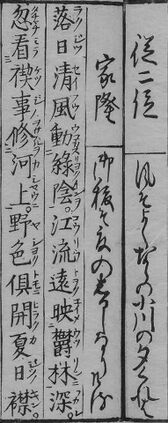 從二位 風そよくならの小川の夕くれは
家隆 御祓そ夏のしるしなりける
落日清風動綠陰。江流遠映欝林深。
忽看禊事修河上。野色俱開夏日襟。